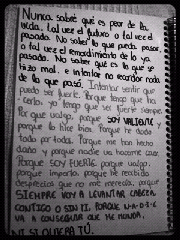 Nunca sabré qué es peor de la
vida, tal vez el futuro o tal vez el
pasado. No saber lo que pueda pasar,
o tal vez el remordimiento de lo ya
pasado. No saber qué es lo que se
hizo mal, e intentar no recordar nada
de lo que pasó. Intentar sentir que
puedo ser fuerte. Porque tengo que ha-
cerlo, yo tengo que ser fuerte siempre.
Por que valgo, porque SOY VALIENTE y
porque lo hice bien. Porque he dado
todo por todos. Porque me han hecho
daño y porque nadie va hacerme caer.
Porque SOY FUERTE, porque valgo,
porque importo, porque he recibido
desprecios que no me merecía, porque
SIEMPRE VOY A LEVANTAR CABEZA
CONTIGO O SIN TI. PORQUE N-A-D-I-E
VA A CONSEGUIR QUE ME HUNDA,
NI SIQUIERA TÚ.